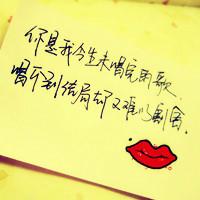 你是我今生未唱完的歌.
唱不到结局却又难以割舍.